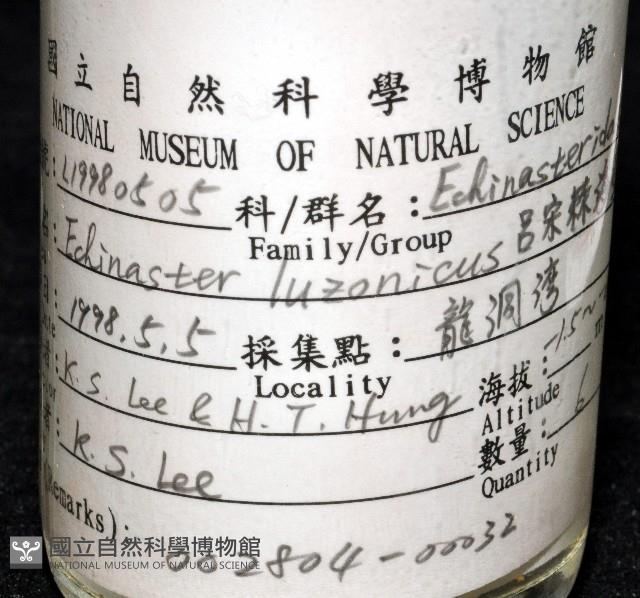 國立自然科學博物館
NATIONAL MUSEUM OF NATURAL SCIENCE
: L19980505 科/群名: Echinasterida
Family/Group
: Echinaster luzonicus 呂宋棘
: 1998.5.5 採集點: 龍洞湾
Locality
: K.S. Lee & H.T. Hung 海拔:
Altitude
: K.S. Lee 數量: 6
Quantity
emarks):
804-00032
國立自然科學博物館
NATIONAL MUSEUM OF NATURAL SCIENCE